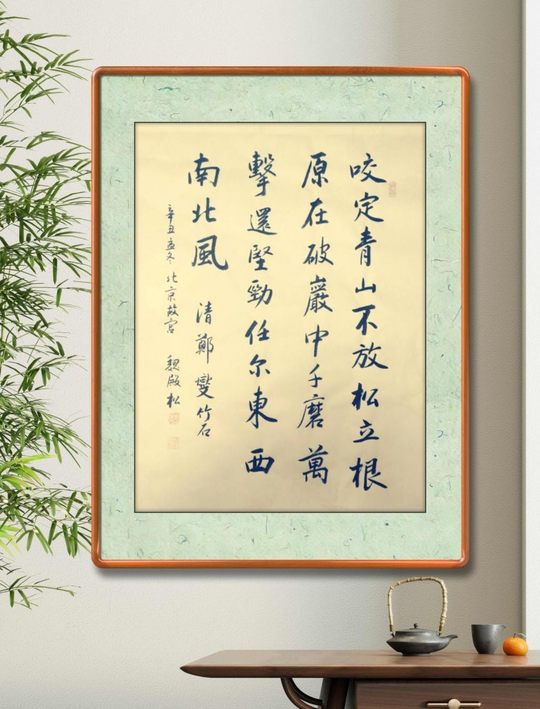 咬定青山不放松立根
原在破巖中千磨萬
擊還堅勁任尔東西
南北風
清鄭燮竹石
辛丑孟冬北京故宫 魏殿松